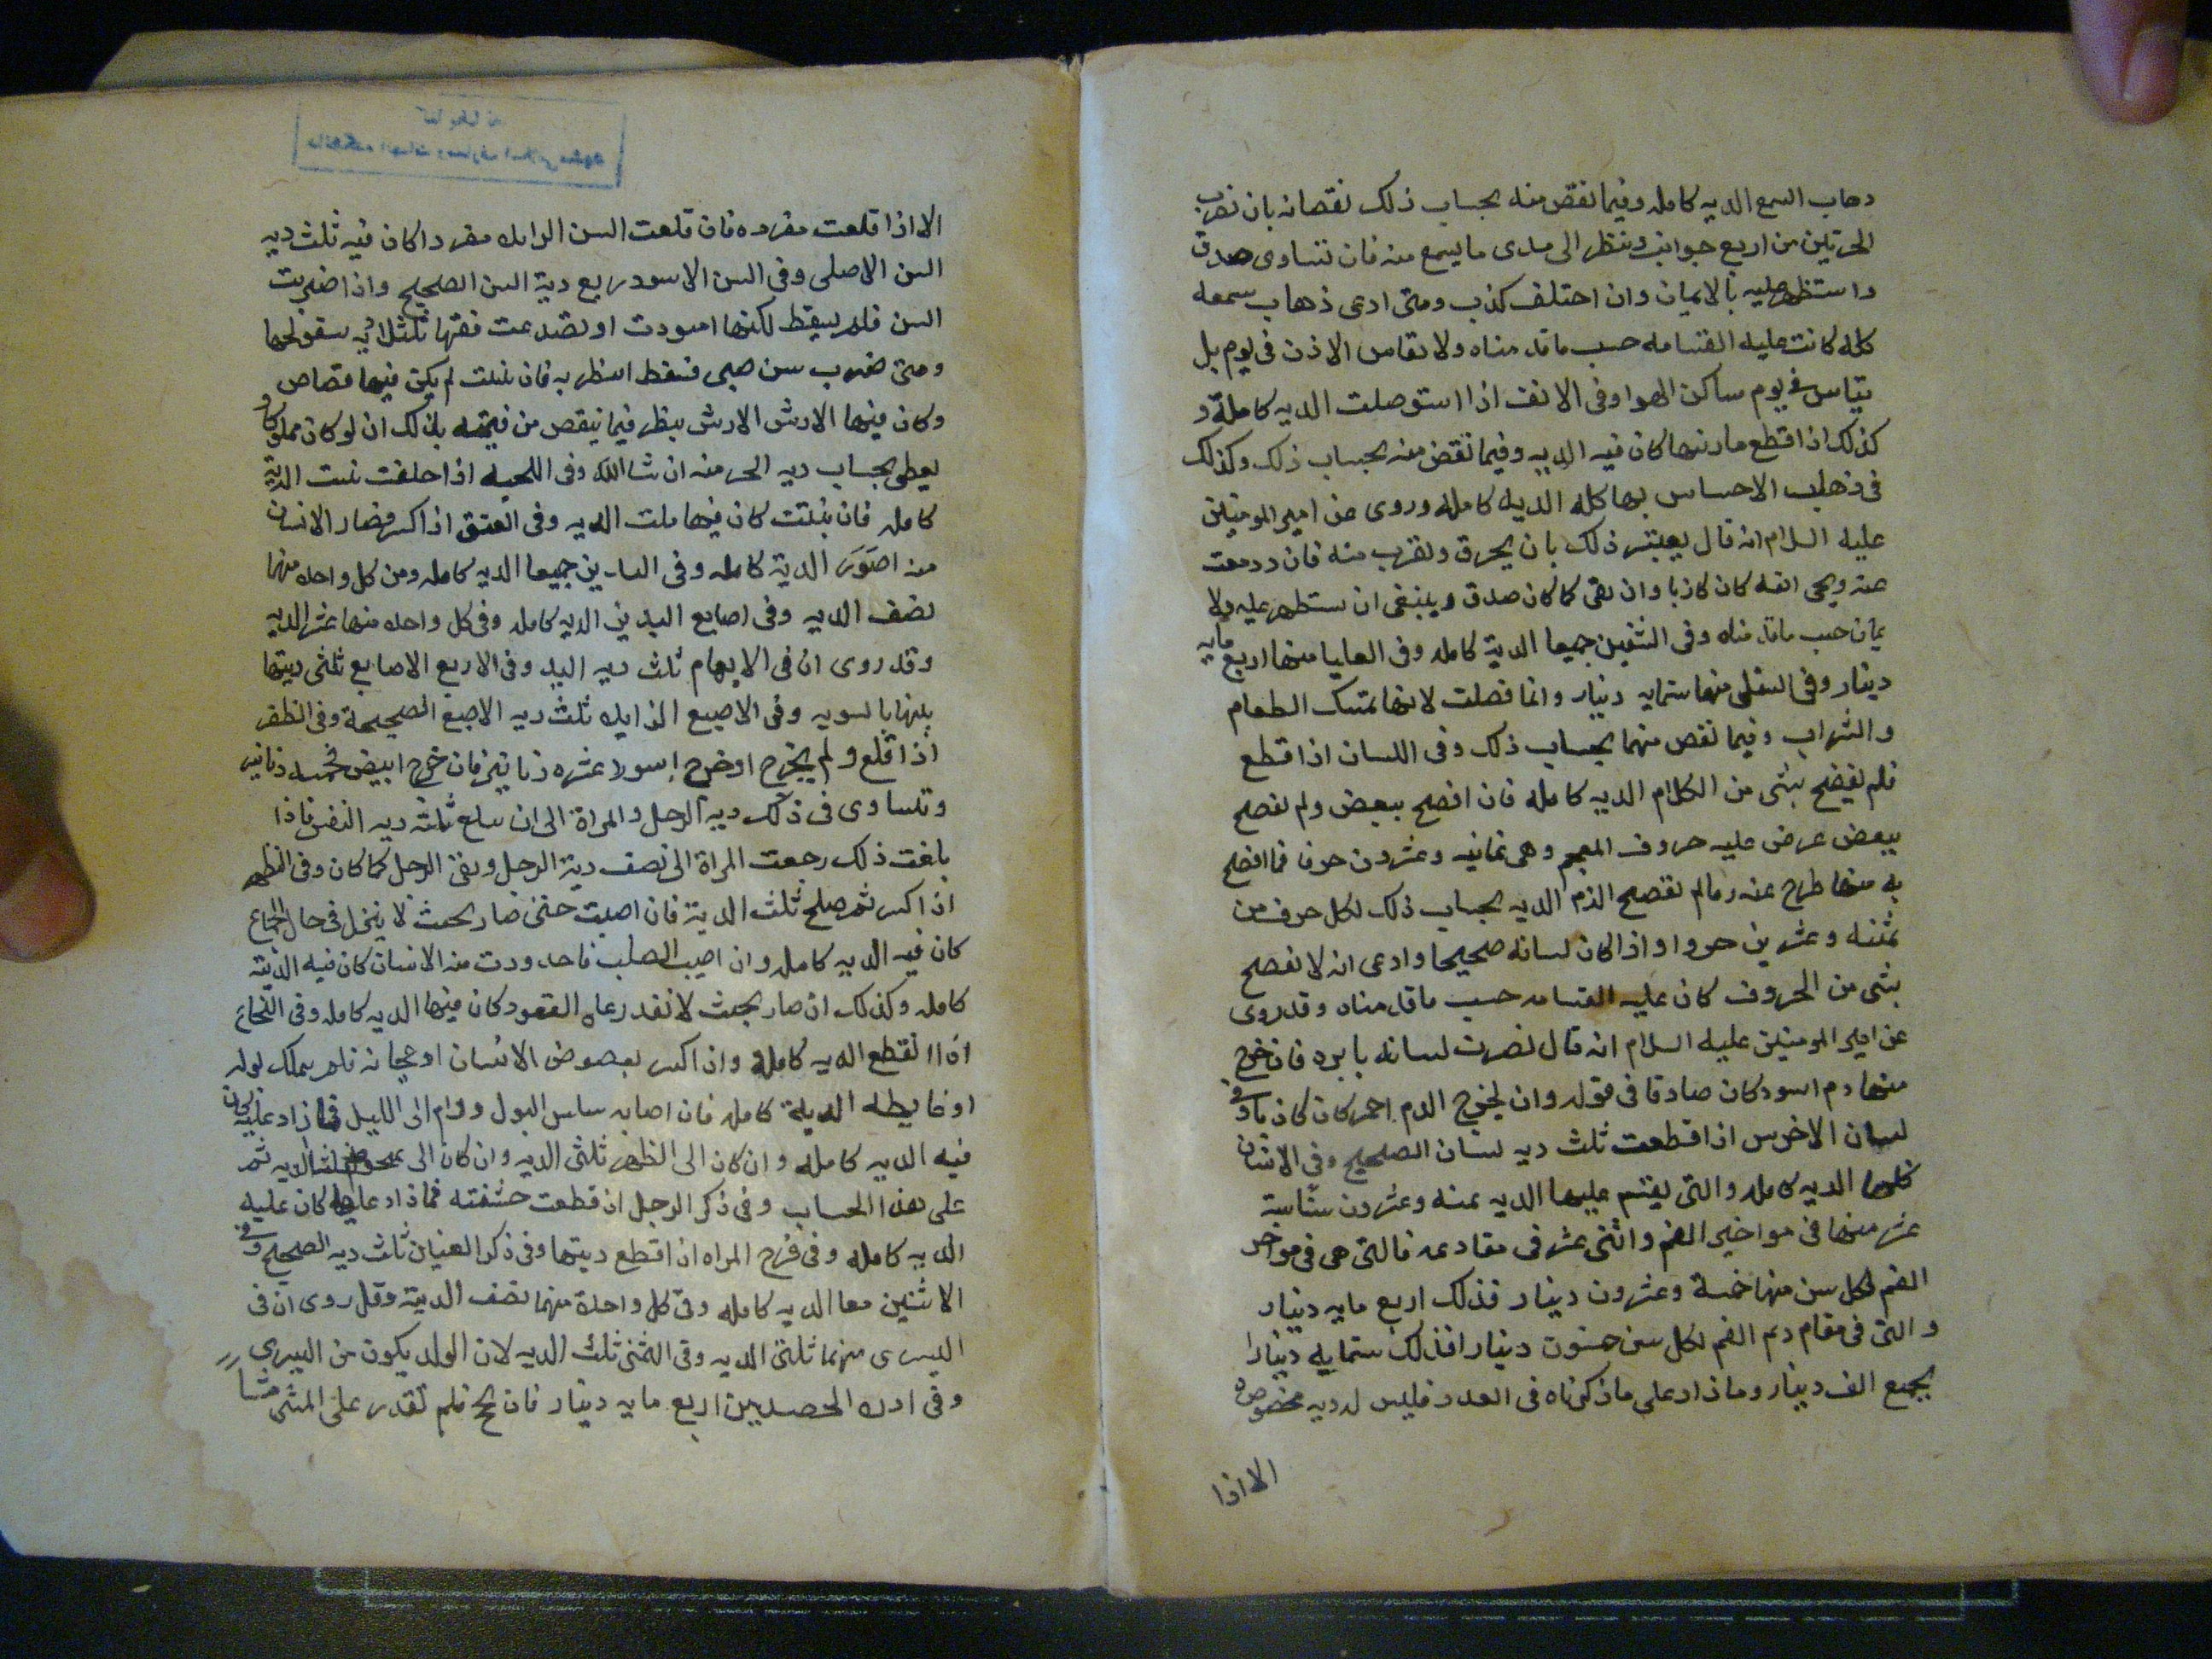 دهاب السمع الديه كامله وفيما نقص منه بحساب ذلك نقصانه بان نضرب
الحرتين من اربع جوانب وننظر الى مدى ما يسمع منه فان تتساوى صدق
واستظهر عليه بالايمان وان اختلف كذب ومتى ادعى ذهاب سمعه
كله كانت عليه القسامه حسب ما قدمناه ولا تقاس الاذن فى يوم بل
يقاس فى يوم ساكن الهوا وفى الانف اذا استوصلت الديه كاملة و
كذلك اذا قطع مارنها كان فيه الديه وفيما نقص منه بحساب ذلك وكذلك
فى ذهاب الاحساس بها كله الديه كامله وروى عن امير المومنين
عليه السلام انه قال يعتبر ذلك بان يحرق ويقرب منه فان ددمعت
عنه ويحى انفه كان كاذبا وان بقى كما كان صدق وينبغى ان يستظهر عليه بالا
يمان حسب ما قدمناه وفى الشفين جميعا الديه كامله وفى العليا منها اربع مايه
دينار وفى السفلى منها ستمايه دينار وانما فضلت لانها تمسك الطعام
والشراب وفيما نقص منهما بحساب ذلك وفى اللسان اذا قطع
فلم يفصح بشى من الكلام الديه كامله فان افصح ببعض ولم يفصح
ببعض عرض عليه حروف المعجم وهى ثمانيه وعشرون حرفا فما افصح
به منها طرح عنه ومالم يفصح الزم الديه بحساب ذلك لكل حرف من
ثمنيه وعشرين حروا واذا كان لسانه صحيحا وادعى انه لا يفصح
بشى من الحروف كان عليه القسامه حسب ما قدمناه وقد روى
عن امير المومنين عليه السلام انه قال تضرب لسانه بابره فان خرج
منها دم اسود كان صادقا فى قوله وان يخرج الدم احمر كان كاذبا وفى
لسان الاخرس اذا قطعت ثلث ديه لسان الصحيح وفى الاسنان
كلها الديه كامله والتى يقسم عليها الديه ثمنه وعشرون سنا ستة
عشر منها فى مواخير الفم واثنى عشر فى مقاديمه فالتى هى فى مواخير
الفم لكل سن منها خمسة وعشرون دينار فذلك اربع مايه دينار
والتى فى مقاديم الفم لكل سن خمسون دينارا فذلك ستمايه دينارا
يجمع الف دينار وما زاد على ما ذكرناه فى العدد فليس له ديه مخصوصه
الا اذا
الا اذا قلعت مفرده فان قلعت السن الزايده مفردا كان فيه ثلث ديه
السن الاصلى وفى السن الاسود ربع دية السن الصحيح واذا ضربت
السن فلم يسقط لكنها اسودت او تصدعت ففيها ثلثا ديه سقوطها
ومتى ضرب سن صبى فسقط انتظر به فان نبتت لم يكن فيها قصاص
وكان فيها الارش الارش ينظر فيما ينقص من قيمته بذلك ان لو كان مملوكا و
يعطى بحساب ديه الحر منه ان شا الله وفى اللحيه اذا حلقت نبت الدية
كامله فان نبتت كان فيها ثلث الديه وفى العنق اذا كسر فصار الانسان
منه اصور الدية كامله وفى اليدين جميعا الديه كامله ومن كل واحده منهما
نصف الديه وفى اصابع اليدين الديه كامله وفى كل واحده منها عشر الديه
وقد روى ان فى الابهام ثلث ديه اليد وفى الاربع الاصابع ثلثى ديتها
بينها بالسويه وفى الاصبع الزايده ثلث ديه الاصبع الصحيحة وفى الظفر
اذا قلع ولم يخرج او خرج اسود عشره دنانير فان خرج ابيض فخمسه دنانير
وتتساوى فى ذلك ديه الرجل والمراة الى ان يبلغ ثلثه ديه النفس فاذا
بلغت ذلك رجعت المراة الى نصف دية الرجل وبقى الرجل كما كان وفى الظهر
اذا كسر ثم صلح ثلث الدية فان اصيب حتى صار بحيث لا ينزل فى حال الجماع
كان فيه الديه كامله وان اصيب الصلب فاحدودب منه الانسان كان فيه الدية
كامله وكذلك ان صار بحيث لا يقدر على القعود كان فيها الديه كامله وفى النخاع
اذا انقطع الديه كامله واذا كسر بعصوص الانسان او عجانه فلم يملك بوله
او غايطه الدية كامله فان اصابه سلس البول ودام الى الليل فما زاد عليه كان
فيه الديه كامله وان كان الى الظهر ثلثى الديه وان كان الى ضحوه ثلث الديه ثم
على هذا الحساب وفى ذكر الرجل اذا قطعت حشفته فما زاد عليها كان عليه
الديه كامله وفى فرج المراه اذا قطع ديتها وفى ذكر العنين ثلث ديه الصحيح وفى
الانثيين معا الديه كامله وفى كل واحدة منهما نصف الدية وقد روى ان فى
اليسرى منهما ثلثى الديه وفى اليمنى ثلث الديه لان الولد يكون من اليسرى
وفى ادره الخصيين اربع مايه دينار فان فحج فلم يقدر على المشى مشيا